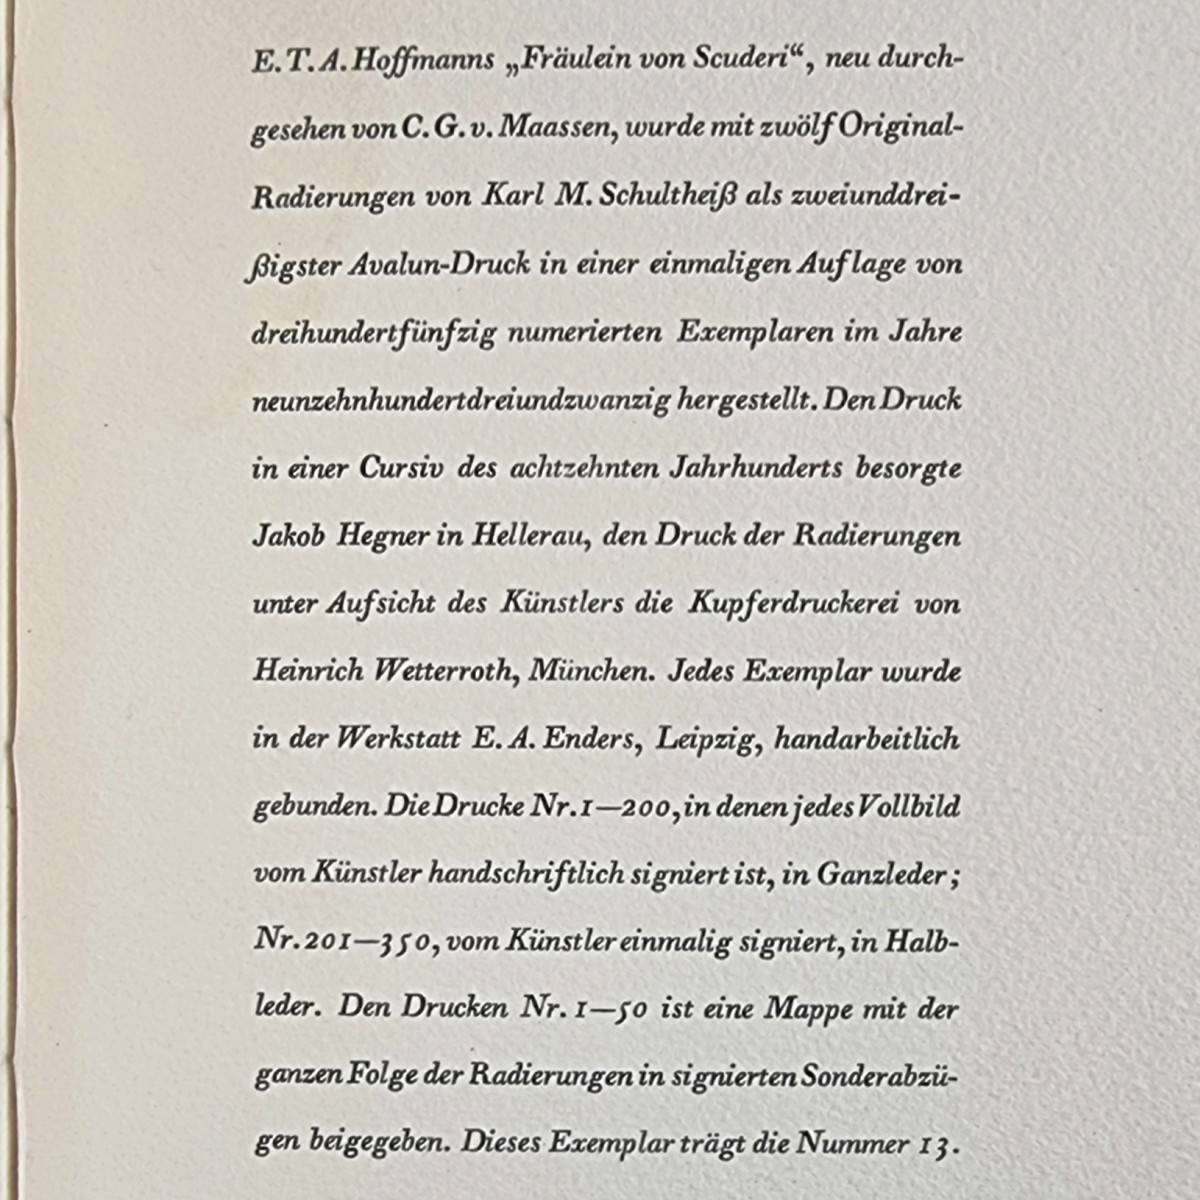 E. T. A. Hoffmanns „Fräulein von Scuderi“, neu durch-
gesehen von C. G. v. Maassen, wurde mit zwölf Original-
Radierungen von Karl M. Schultheiß als zweiunddrei-
ßigster Avalun-Druck in einer einmaligen Auflage von
dreihundertfünfzig numerierten Exemplaren im Jahre
neunzehnhundertdreiundzwanzig hergestellt. Den Druck
in einer Cursiv des achtzehnten Jahrhunderts besorgte
Jakob Hegner in Hellerau, den Druck der Radierungen
unter Aufsicht des Künstlers die Kupferdruckerei von
Heinrich Wetterroth, München. Jedes Exemplar wurde
in der Werkstatt E. A. Enders, Leipzig, handarbeitlich
gebunden. Die Drucke Nr. 1—200, in denen jedes Vollbild
vom Künstler handschriftlich signiert ist, in Ganzleder;
Nr. 201—350, vom Künstler einmalig signiert, in Halb-
leder. Den Drucken Nr. 1—50 ist eine Mappe mit der
ganzen Folge der Radierungen in signierten Sonderabzü-
gen beigegeben. Dieses Exemplar trägt die Nummer 13.